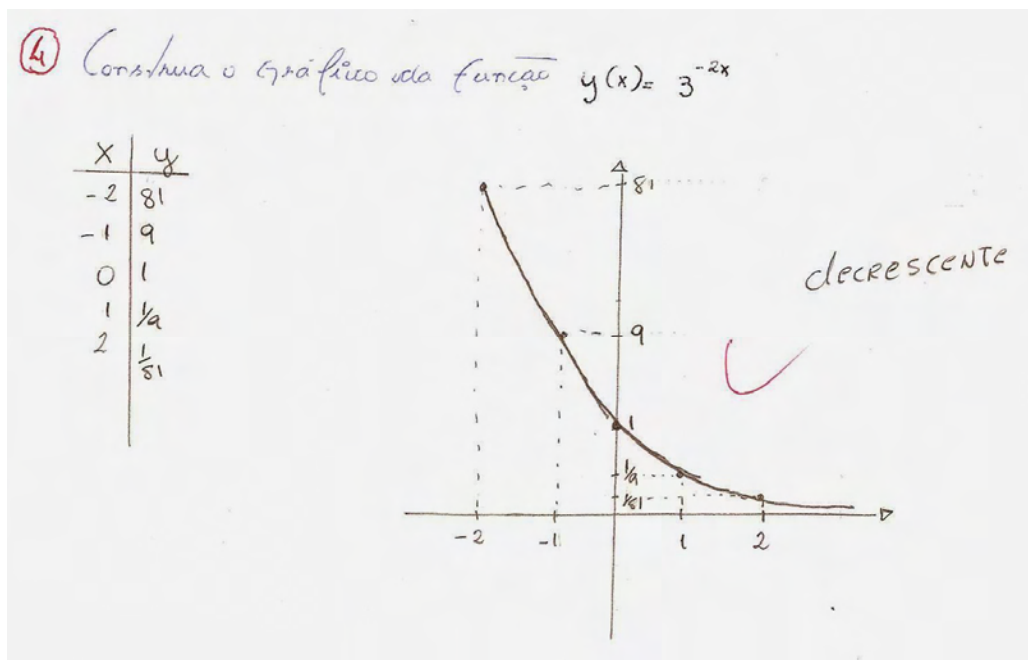 4 Construa o gráfico da função y(x)= 3^-2x
x y
-2 81
-1 9
0 1
1 1/9
2 1/81
81
9
1
1/9
1/81
-2 -1 1 2
decrescente